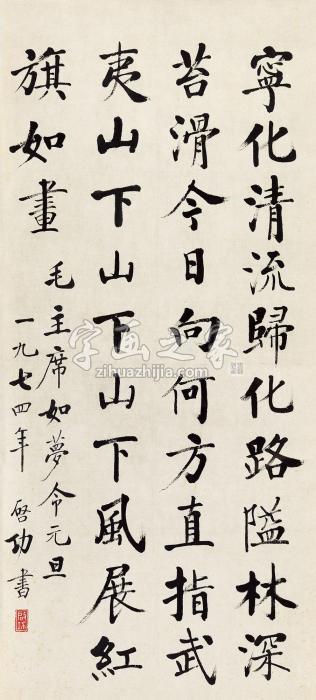 寧化清流歸化路隘林深
苔滑今日向何方直指武
夷山下山下山下風展紅
旗如畫
毛主席如夢令元旦
一九七四年 啓功書
字画之家
zihuazhijia.com